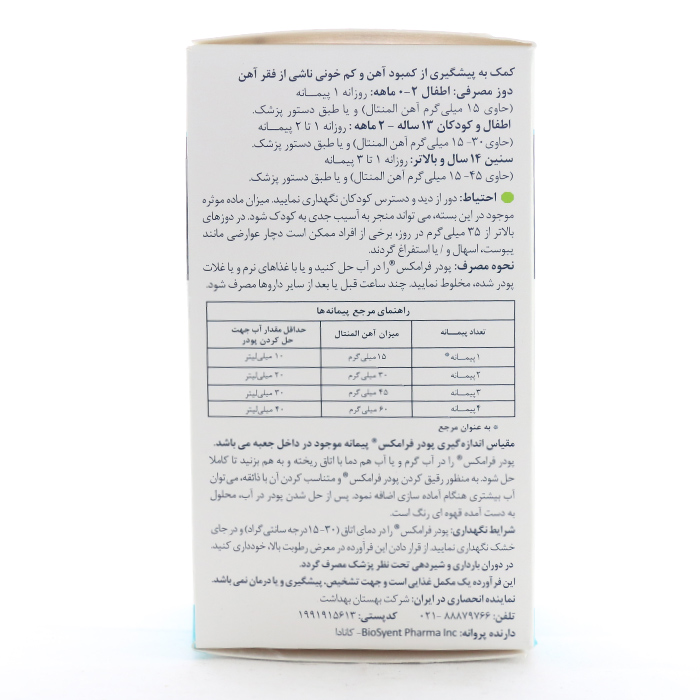 کمک به پیشگیری از کمبود آهن و کم خونی ناشی از فقر آهن
دوز مصرفی: اطفال ۲-۰ ماهه: روزانه ۱ پیمـانه
(حاوی ۱۵ میلی‌گرم آهن المنتال) و یا طبق دستور پزشک.
اطفال و کودکان ۱۳ ساله - ۲ ماهه : روزانه ۱ تا ۲ پیمـانه
(حاوی ۳۰- ۱۵ میلی گرم آهن المنتال) و یا طبق دستور پزشک.
سنین ۱۴ سال و بالاتر: روزانه ۱ تا ۳ پیمـانه
(حاوی ۴۵- ۱۵ میلی گرم آهن المنتال) و یا طبق دستور پزشک.
احتیاط: دور از دید و دسترس کودکان نگهداری نمایید. میزان ماده موثره
موجود در این بسته، می تواند منجر به آسیب جدی به کودک شود. در دوزهای
بالاتر از ۳۵ میلی‌گرم در روز، برخی از افراد ممکن است دچار عوارضی مانند
یبوست، اسهال و / یا استفراغ گردند.
نحوه مصرف: پودر فرامکس® را در آب حل کنید و یا با غذاهای نرم و یا غلات
پودر شده، مخلوط نمایید. چند ساعت قبل یا بعد از سایر داروها مصرف شود.
راهنمای مرجع پیمانه‌ها
تعداد پیـمـانه میزان آهن المنتال حداقل مقدار آب جهت
حل کردن پودر
۱ پیمـانه* ۱۵ میلی‌گرم ۱۰ میلی‌لیتر
۲ پیمـانه ۳۰ میلی‌گرم ۲۰ میلی‌لیتر
۳ پیمـانه ۴۵ میلی‌گرم ۳۰ میلی‌لیتر
۴ پیمـانه ۶۰ میلی‌گرم ۴۰ میلی‌لیتر
* به عنوان مرجع
مقیاس اندازه‌گیری پودر فرامکس® پیمانه موجود در داخل جعبه می باشد.
پودر فرامکس® را در آب گرم و یا آب هم دما با اتاق ریخته و به هم بزنید تا کاملا
حل شود. به منظور رقیق کردن پودر فرامکس® و متناسب کردن آن با ذائقه، می‌توان
آب بیشتری هنگام آماده سازی اضافه نمود. پس از حل شدن پودر در آب، محلول
به دست آمده قهوه ای رنگ است.
شرایط نگهداری: پودر فرامکس® را در دمای اتاق (۳۰-۱۵ درجه سانتی‌گراد) و در جای
خشک نگهداری نمایید. از قرار دادن این فرآورده در معرض رطوبت بالا، خودداری کنید.
در دوران بارداری و شیردهی تحت نظر پزشک مصرف گردد.
این فرآورده یک مکمل غذایی است و جهت تشخیص، پیشگیری و یا درمان نمی باشد.
نماینده انحصاری در ایران: شرکت بهستان بهداشت
تلفن: ۸۸۸۷۹۷۶۶ -۰۲۱ کدپستی: ۱۹۹۱۹۱۵۶۱۳
دارنده پروانه: BioSyent Pharma Inc- کانادا